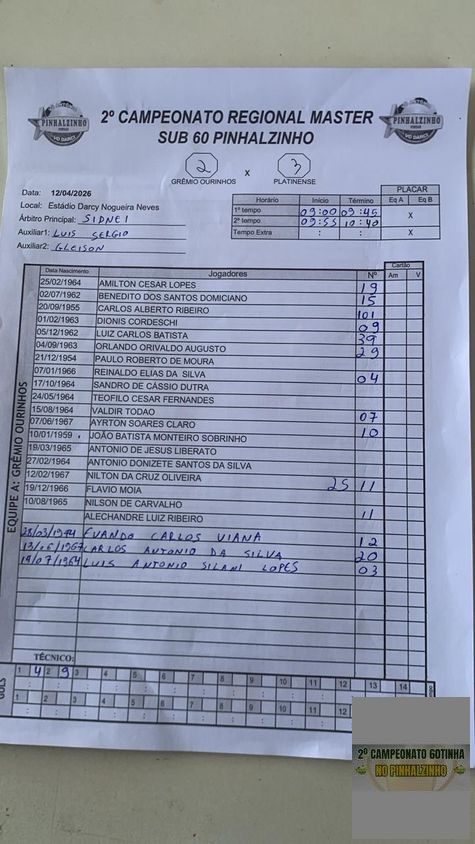 PINHALZINHO
VG DARCI
2º CAMPEONATO REGIONAL MASTER
SUB 60 PINHALZINHO
PINHALZINHO
VG DARCI
2 x 3
GRÊMIO OURINHOS PLATINENSE
Data: 12/04/2026
Local: Estádio Darcy Nogueira Neves
Árbitro Principal: SIDNEI
Auxiliar1: LUIS SERGIO
Auxiliar2: GLEISON
PLACAR
Horário Início Término Eq A Eq B
1º tempo 09:00 09:45 X
2º tempo 09:55 10:40
Tempo Extra : : X
EQUIPE A: GRÊMIO OURINHOS
Cartão
Data Nascimento Jogadores Nº Am V
25/02/1964 AMILTON CESAR LOPES 19
02/07/1962 BENEDITO DOS SANTOS DOMICIANO 15
20/09/1955 CARLOS ALBERTO RIBEIRO 101
01/02/1963 DIONIS CORDESCHI 09
05/12/1962 LUIZ CARLOS BATISTA 39
04/09/1963 ORLANDO ORIVALDO AUGUSTO 29
21/12/1954 PAULO ROBERTO DE MOURA
07/01/1966 REINALDO ELIAS DA SILVA 04
17/10/1964 SANDRO DE CÁSSIO DUTRA
24/05/1964 TEOFILO CESAR FERNANDES
15/08/1964 VALDIR TODAO 07
07/06/1967 AYRTON SOARES CLARO 10
10/01/1959 JOÃO BATISTA MONTEIRO SOBRINHO
19/03/1965 ANTONIO DE JESUS LIBERATO
27/02/1964 ANTONIO DONIZETE SANTOS DA SILVA
12/02/1967 NILTON DA CRUZ OLIVEIRA
19/12/1966 FLAVIO MOIA 25 11
10/08/1965 NILSON DE CARVALHO
ALECHANDRE LUIZ RIBEIRO 11
28/03/1974 EVANDO CARLOS VIANA 12
13/06/1967 CARLOS ANTONIO DA SILVA 20
19/07/1964 LUIS ANTONIO SILANI LOPES 03
TÉCNICO:
GOLS
1 4 2 9 3 4 5 6 7 8 9 10 11 12 13 14
1 2 3 4 5 6 7 8 9 10 11 12
2º CAMPEONATO GOTINHA
NO PINHALZINHO